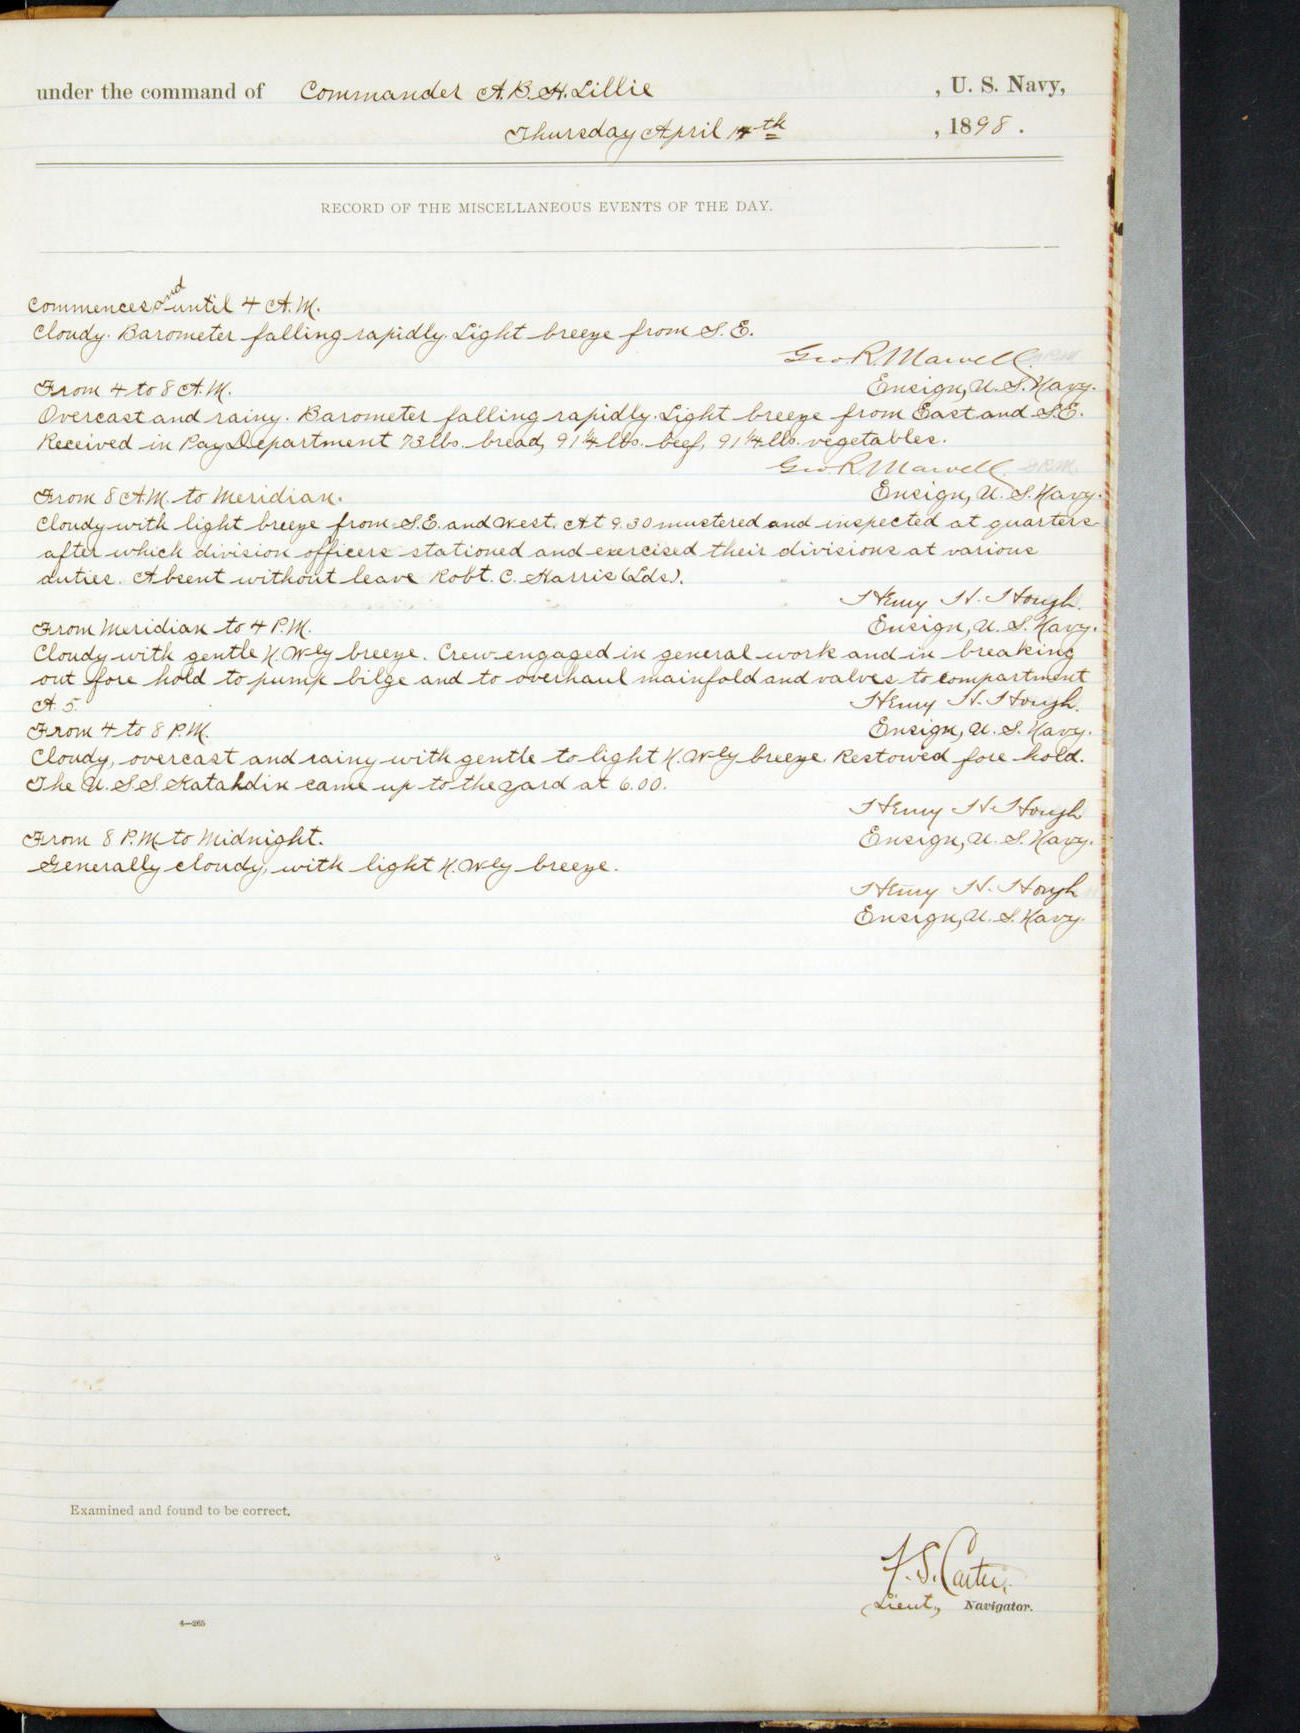 under the command of Commander A. B. H. Lillie, U. S. Navy,
Thursday April 14th, 1898.
RECORD OF THE MISCELLANEOUS EVENTS OF THE DAY.
Commences and until 4 A.M.
Cloudy. Barometer falling rapidly. Light breeze from S.E.
Geo. R. Marvell
From 4 to 8 A.M. Ensign, U. S. Navy.
Overcast and rainy. Barometer falling rapidly. Light breeze from East and S.E.
Received in Pay Department 73 lbs. bread, 91 1/4 lbs. beef, 91 1/4 lbs. vegetables.
Geo. R. Marvell
From 8 A.M. to Meridian. Ensign, U. S. Navy.
Cloudy with light breeze from S.E. and West. At 9.30 mustered and inspected at quarters
after which division officers stationed and exercised their divisions at various
duties. Absent without leave Robt. C. Harris (Lds).
Henry H. Hough.
From Meridian to 4 P.M. Ensign, U. S. Navy.
Cloudy with gentle N.W'ly breeze. Crew engaged in general work and in breaking
out fore hold to pump bilge and to overhaul mainfold and valves to compartment
A. 5. Henry H. Hough.
From 4 to 8 P.M. Ensign, U. S. Navy.
Cloudy, overcast and rainy with gentle to light N.W'ly breeze. Restowed fore hold.
The U.S.S. Katahdin came up to the yard at 6.00.
Henry H. Hough
From 8 P.M. to Midnight. Ensign, U. S. Navy.
Generally cloudy, with light N.W'ly breeze.
Henry H. Hough
Ensign, U. S. Navy.
Examined and found to be correct.
F. S. Carter,
Lieut., Navigator.
4—265